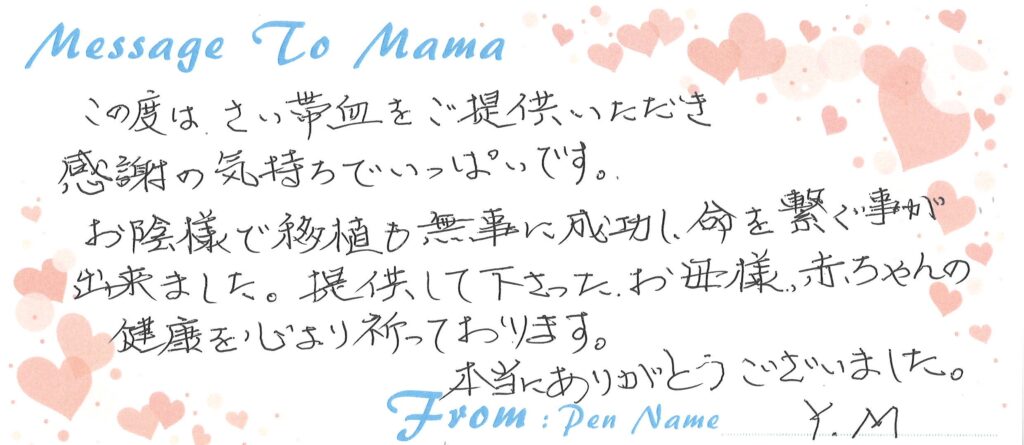 Message To Mama
この度は、さい帯血をご提供いただき
感謝の気持ちでいっぱいです。
お陰様で移植も無事に成功し、命を繋ぐ事が
出来ました。提供して下さった、お母様、赤ちゃんの
健康を心より祈っております。
本当にありがとうございました。
From : Pen Name Y.M